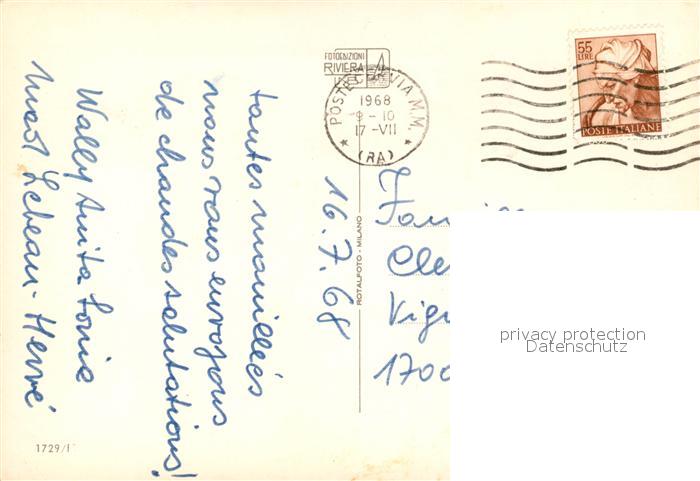 toutes mouillées
nous vous envoyons
de chaudes salutations!
Wally Anita Sonia
Lebeau - Hervé
16.7.68
FOTOEDIZIONI
RIVIERA
POSTE CERVIA M.M.
1968
9 - 10
17 - VII
(RA)
55
LIRE
POSTE ITALIANE
ROTALFOTO - MILANO
1700
privacy protection
Datenschutz
1729/